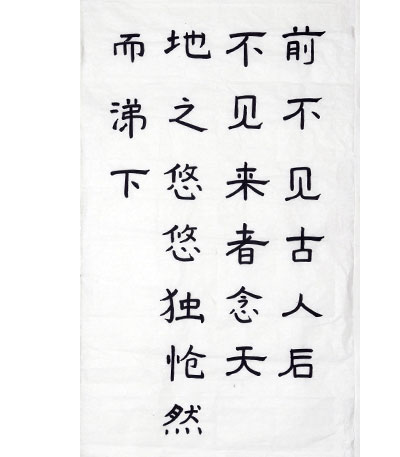 前不见古人后
不见来者念天
地之悠悠独怆然
而涕下